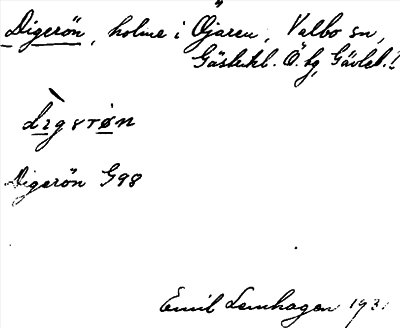 Digerön, holme i Öjaren, Valbo sn,
Gästrikl. Ö. tg, Gävleb. l
dìgerøn
Digerön G98
Emil Lemhagen 1931